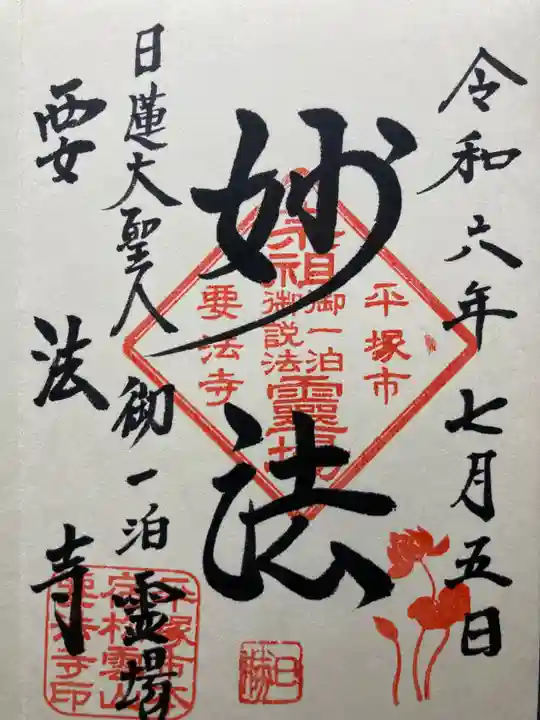 令和六年七月五日
妙法
日蓮大聖人御一泊霊場
要法寺
平塚市
宗祖御一泊御説法靈場
要法寺